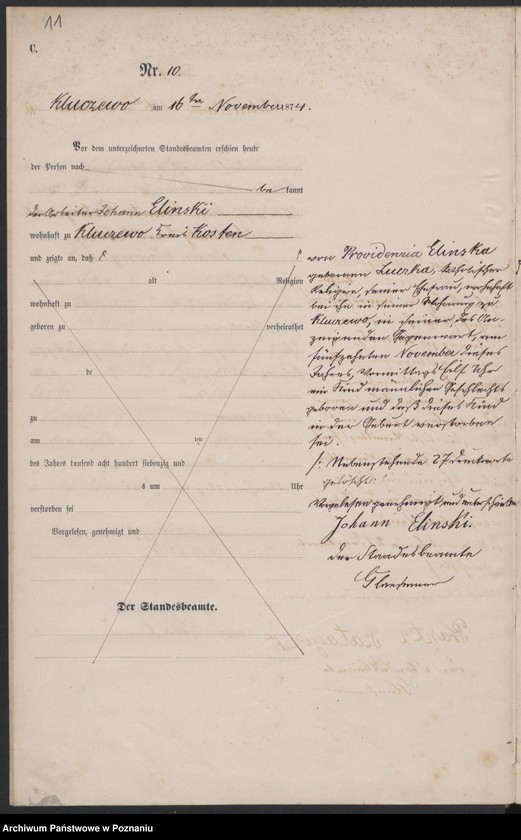 11
C.
Nr. 10.
Kluczewo am 16ten November 1874.
Vor dem unterzeichneten Standesbeamten erschien heute
der Person nach
be kannt
der Arbeiter Johann Elinski
wohnhaft zu Kluczewo Kreis Kosten
und zeigte an, daß
alt Religion
wohnhaft zu
geboren zu verheirathet
de
zu
am ten
des Jahres tausend acht hundert siebenzig und
s um Uhr
verstorben sei
Vorgelesen, genehmigt und
Der Standesbeamte.
von Providenzia Elinska
geborenen Luczka, katholischer
Religion, seiner Ehefrau, wohnhaft
bei ihm in seiner Wohnung zu
Kluczewo, in seiner, des An-
zeigenden Gegenwart, am
fünfzehnten November dieses
Jahres, Vormittags Elf Uhr
ein Kind männlichen Geschlechts
geboren und daß dieses Kind
in der Geburt verstorben
sei.
Nebenstehende 27 Druckworte
gelöscht.
Vorgelesen genehmigt und unterschrieben
Johann Elinski.
der Standesbeamte
Archiwum Państwowe w Poznaniu